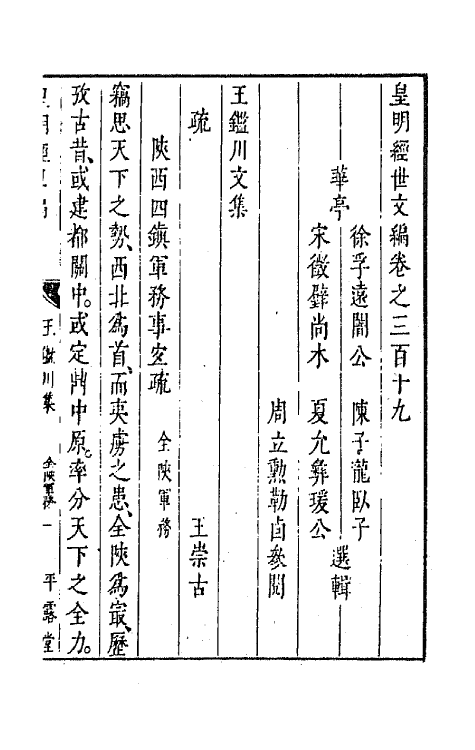 皇明經世文編卷之三百十九
華亭
徐孚遠闇公　陳子龍臥子
宋徵璧尚木　夏允彝瑗公
選輯
周立勲勒卣叅閱
王鑑川文集
疏
王崇古
陝西四鎮軍務事宜疏　全陝軍務
竊思天下之勢、西北為首、而夷虜之患、全陝為㝡、歷
攷古昔、或建都關中。或定鼎中原。率分天下之全力。
皇明經世文編
王鑑川集　全陝軍務　一　平露堂